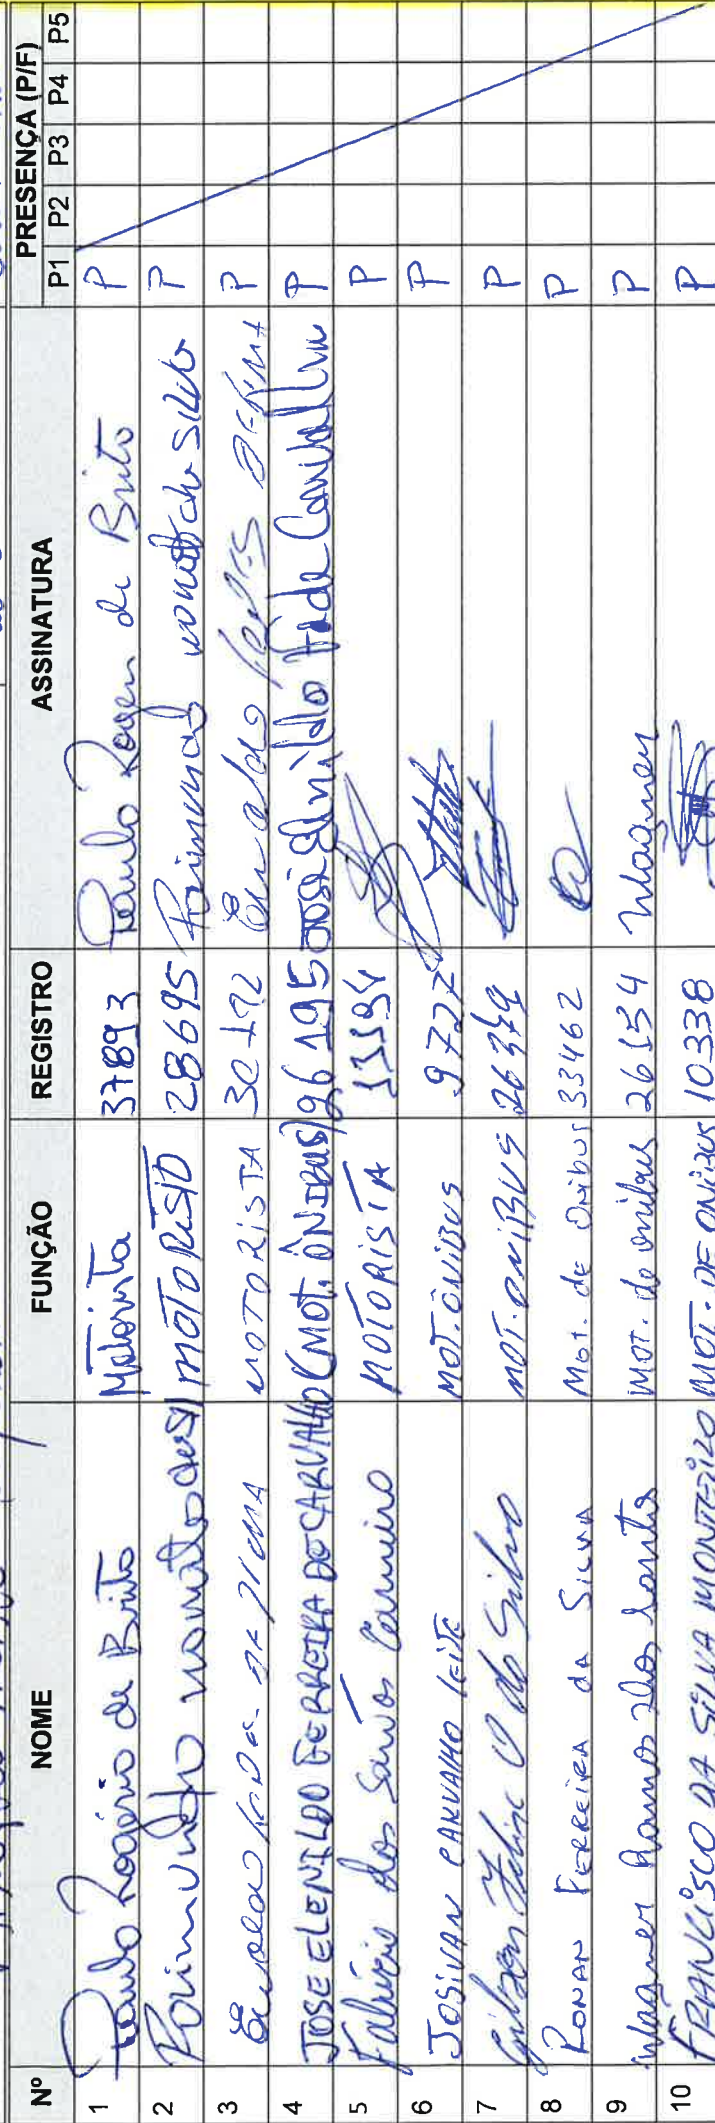 Nº NOME FUNÇÃO REGISTRO ASSINATURA PRESENÇA (P/F)
P1 P2 P3 P4 P5
1 Paulo Rogério de Brito Motorista 37893 Paulo Roger de Brito P
2 Raimundo nonato da Sil MOTORISTA 28695 Raimundo nonato da Silva P
3 MOTORISTA 30192 P
4 JOSE ELENILDO FERREIRA DE CARVALHO (MOT. ÔNIBUS) 96195 José Elenildo P
5 Fabricio dos Santos Carneiro MOTORISTA P
6 JOSIVAN CARVALHO LEITE MOT. ÔNIBUS 9727 P
7 Gilson Felipe O da Silva MOT. ONIBUS 26379 P
8 RONAN FERREIRA DA SILVA Mot. de Onibus 33462 P
9 Wagner Ramos dos Santos MOT. de onibus 26154 Wagner P
10 FRANCISCO DA SILVA MONTEIRO MOT. DE ONIBUS 10338 P